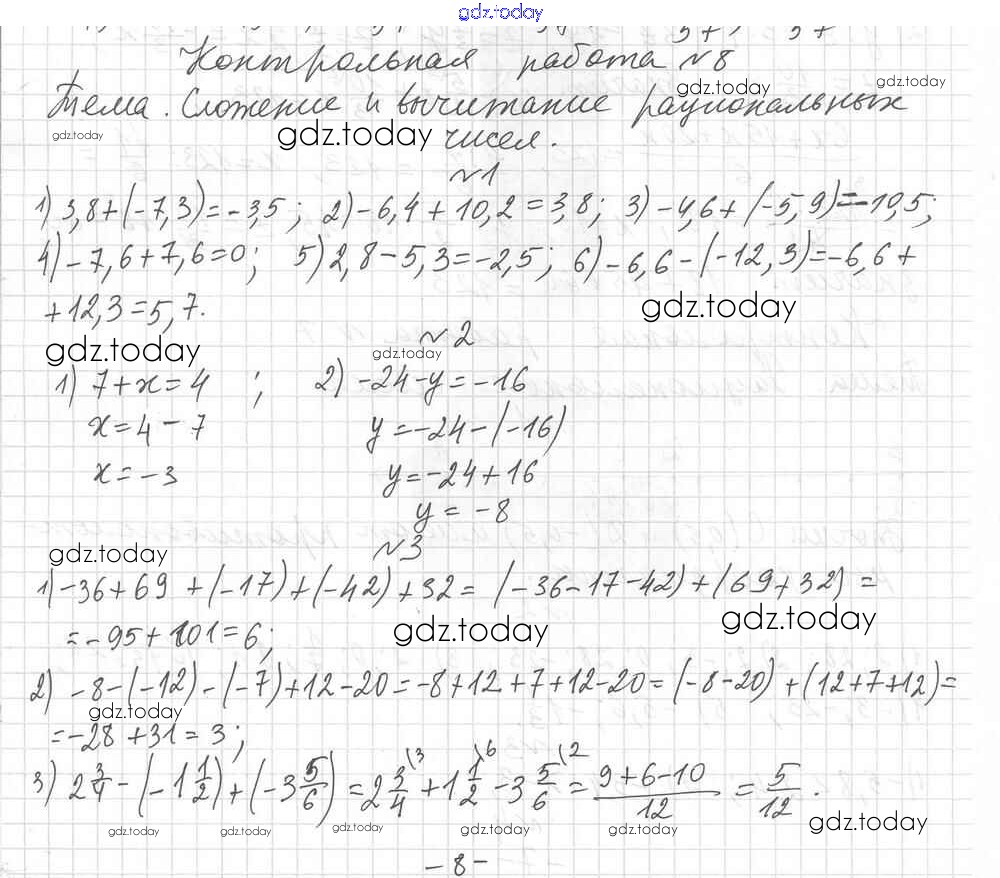 gdz.today
Контрольная работа №8
Тема. Сложение и вычитание рациональных
gdz.today gdz.today
gdz.today gdz.today
чисел.
№1
1) 3,8+(-7,3)=-3,5; 2)-6,4+10,2=3,8; 3)-4,6+(-5,9)=-10,5;
4)-7,6+7,6=0; 5)2,8-5,3=-2,5; 6)-6,6-(-12,3)=-6,6+
+12,3=5,7.
gdz.today
№2
gdz.today gdz.today
1) 7+x=4 ; 2) -24-y=-16
x=4-7 y=-24-(-16)
x=-3 y=-24+16
y=-8
gdz.today
№3
1)-36+69+(-17)+(-42)+32=(-36-17-42)+(69+32)=
=-95+101=6;
gdz.today gdz.today
2) -8-(-12)-(-7)+12-20=-8+12+7+12-20=(-8-20)+(12+7+12)=
gdz.today
=-28+31=3;
3) 2 3/4-(-1 1/2)+(-3 5/6)=2 3/4\3+1 1/2\6-3 5/6\2=(9+6-10)/12=5/12.
gdz.today gdz.today gdz.today gdz.today gdz.today
-8-